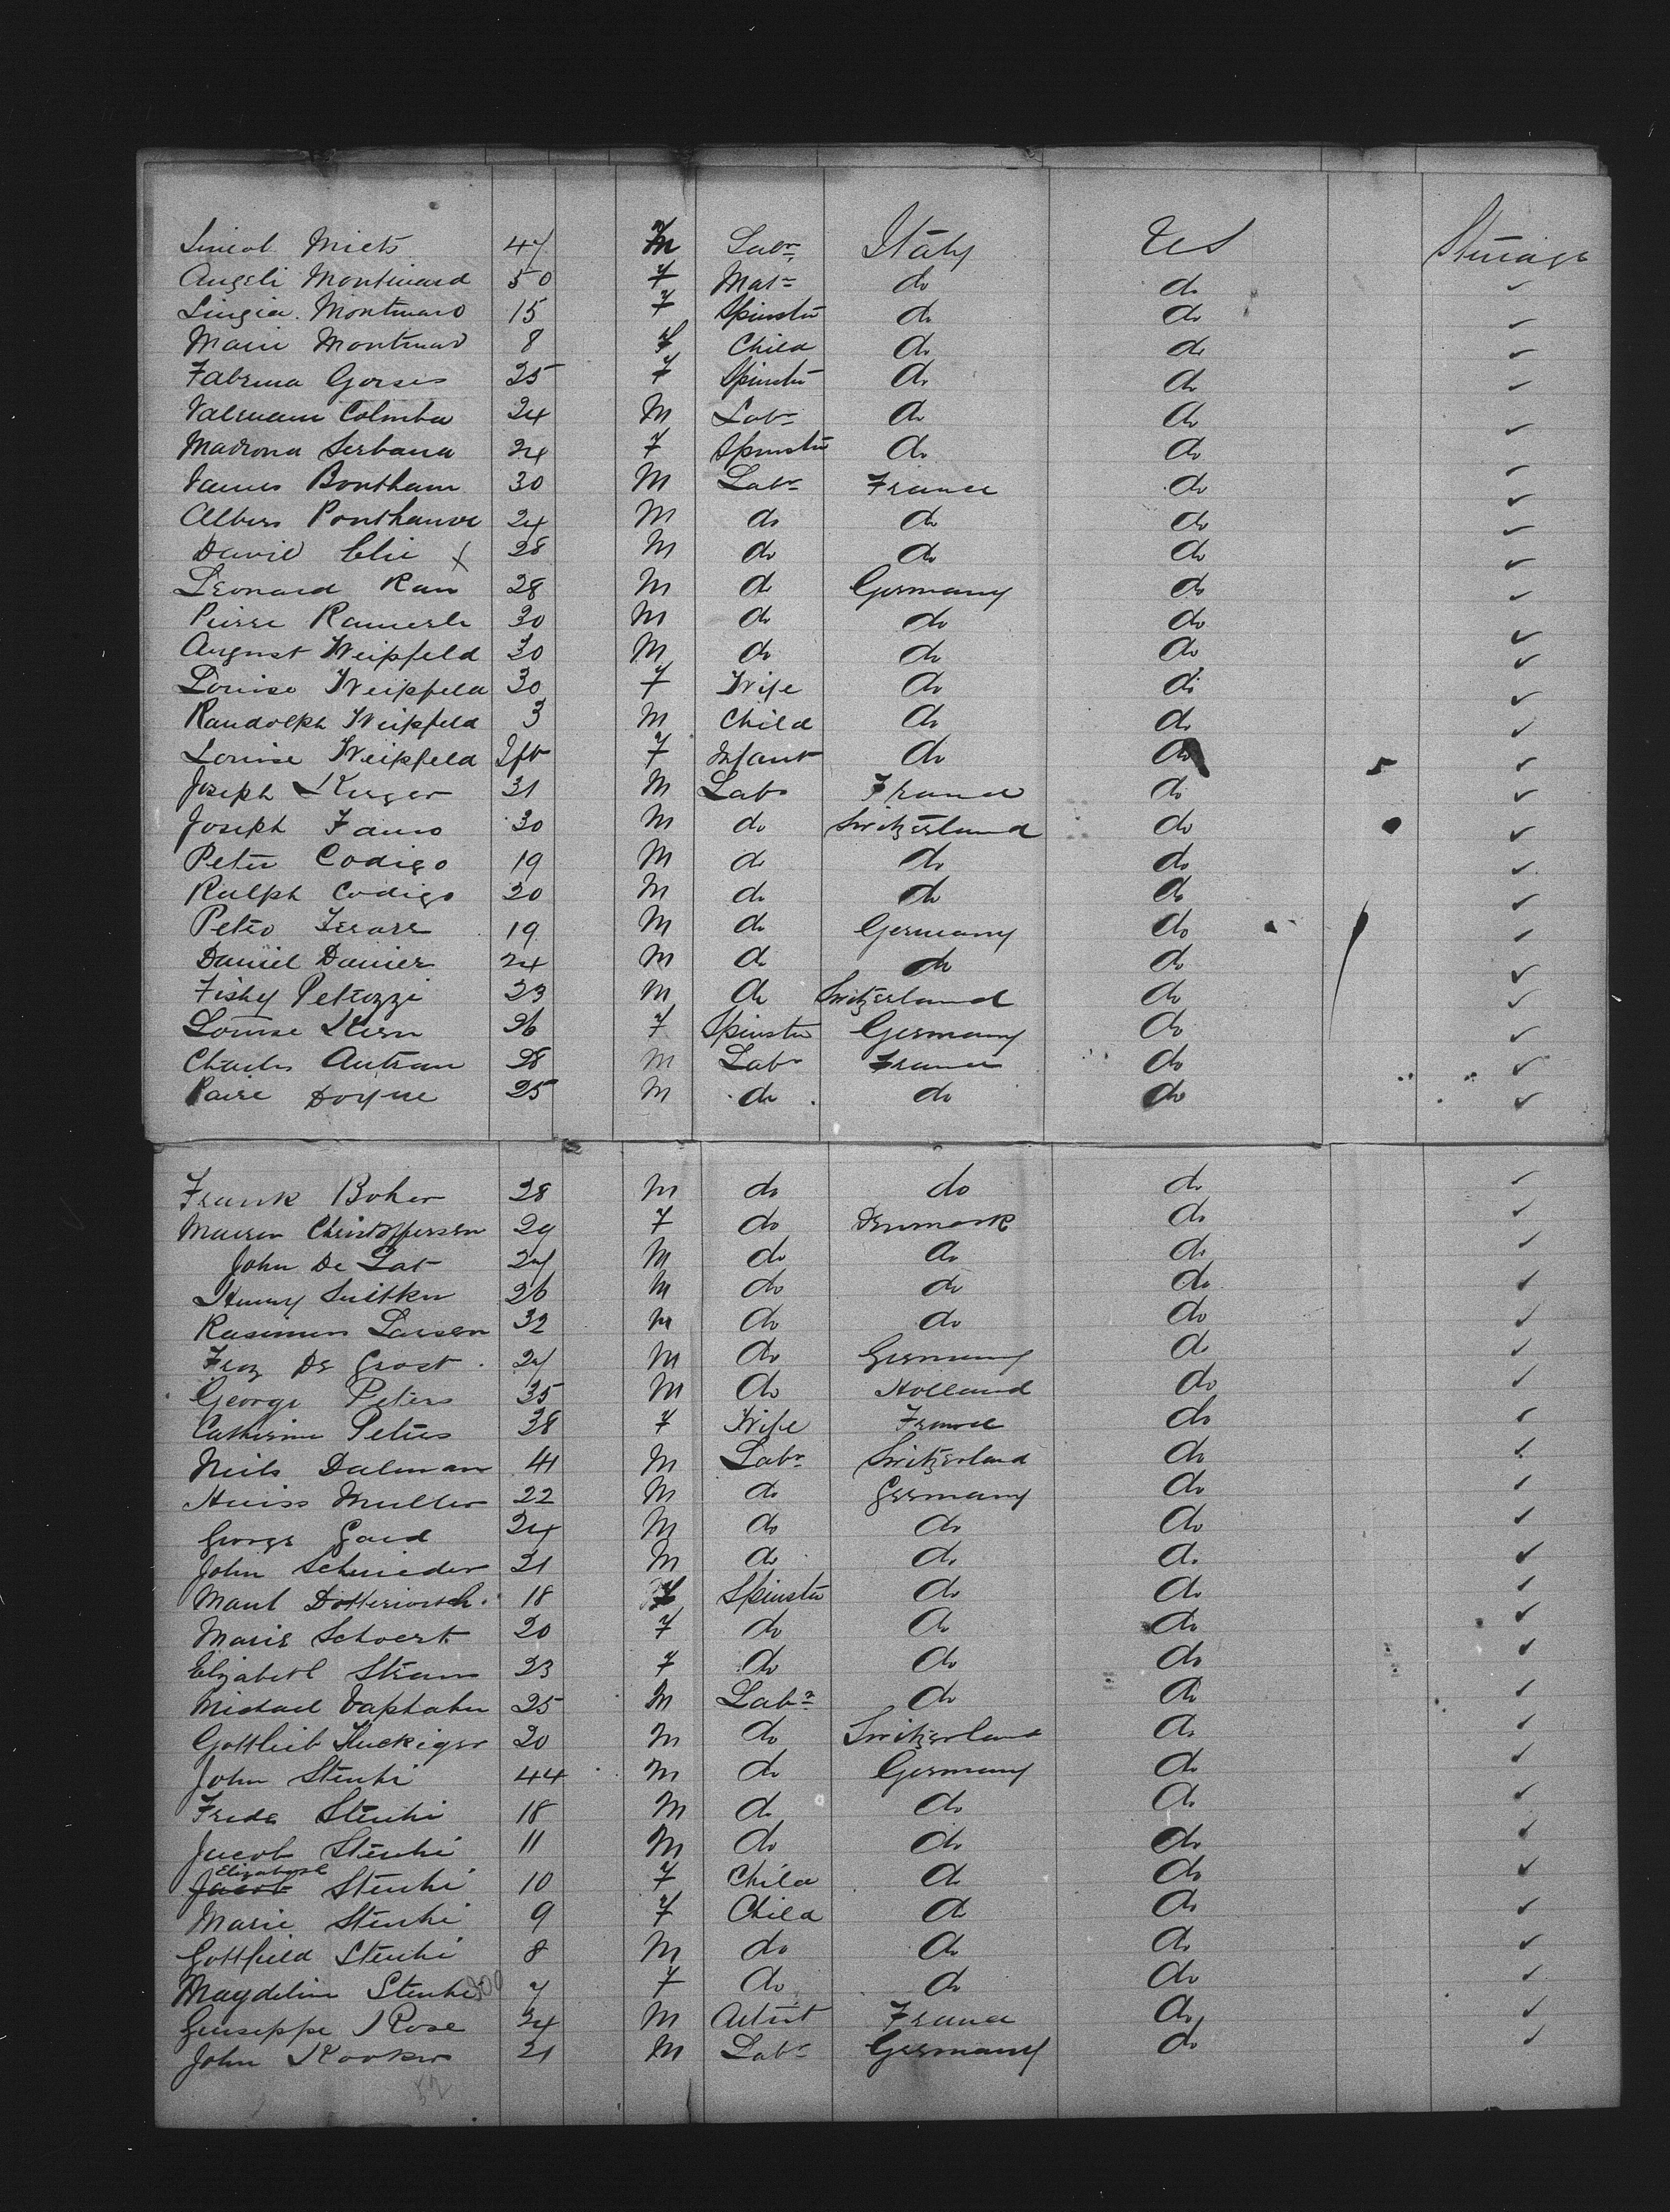 Sineol Miets 47 M Labr Italy US Steerage
Angeli Montinard 50 F Mat= do do ✓
Lingia Montinard 15 F Spinster do do ✓
Marie Montinard 8 F Child do do ✓
Fabrina Gorses 25 F Spinster do do ✓
Valeriani Colomba 24 M Labr do do ✓
Madrona Serbana 24 F Spinster do do ✓
James Bontham 30 M Labr France do ✓
Albers Ponthauve 24 M do do do ✓
David Elie X 28 M do do do ✓
Leonard Ran 28 M do Germany do ✓
Pierre Ramerle 30 M do do do ✓
August Weipfeld 30 M do do do ✓
Louise Weipfeld 30 F Wife do do ✓
Randolph Weipfeld 3 M Child do do ✓
Louise Weipfeld Inft F Infant do do ✓
Joseph Kuger 31 M Labr France do ✓
Joseph Fauro 30 M do Switzerland do ✓
Peter Codigo 19 M do do do ✓
Ralph Codigo 20 M do do do ✓
Petro 19 M do Germany do ✓
Daniel Danier 24 M do do do ✓
Fishy Petozzi 23 M do Switzerland do ✓
Louise Kern 26 F Spinster Germany do ✓
Charles Autran 28 M Labr France do ✓
Paire Doyne 25 M do do do ✓
Frank Boher 28 M do do do ✓
Mauren Christoffersen 29 F do Denmark do ✓
John De Lat 27 M do do do ✓
Henry Suitker 26 M do do do ✓
Rasimus Larsen 32 M do do do ✓
Frez De Groot 27 M do Germany do ✓
George Peters 35 M do Holland do ✓
Catherine Peters 38 F Wife France do ✓
Neils Dalman 41 M Labr Switzerland do ✓
Heiss Muller 22 M do Germany do ✓
George Gard 24 M do do do ✓
John Schneider 21 M do do do ✓
Maul 18 F Spinster do do ✓
Marie Schoert 20 F do do do ✓
Elizabeth Straus 23 F do do do ✓
Michael Vaphahn 25 M Labr do do ✓
Gottlieb Fluckiger 20 M do Switzerland do ✓
John Steuhi 44 M do Germany do ✓
Freda Steuhi 18 M do do do ✓
Jacob Steuhi 11 M do do do ✓
Elizabeth
Jacob Steuhi 10 F Child do do ✓
Marie Steuhi 9 F Child do do ✓
Gottfield Steuhi 8 M do do do ✓
Maydeline Steuhi 7 F do do do ✓
Guiseppe Rose 24 M Artist France do ✓
John Kooker 21 M Labr Germany do ✓
52